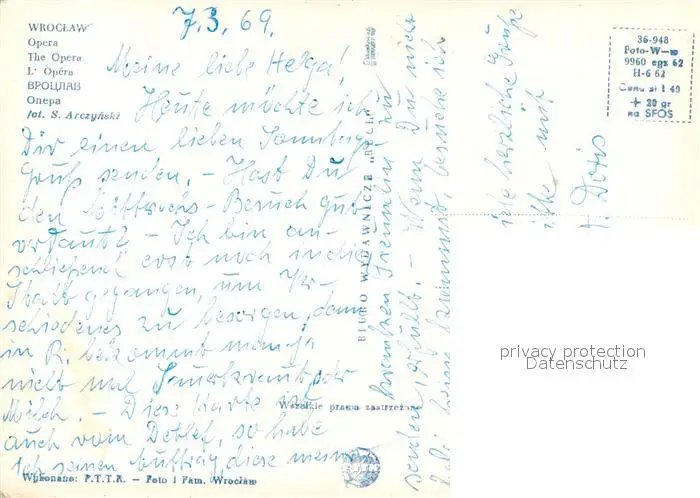 WROCŁAW
Opera
The Opera
L' Opéra
ВРОЦЛАВ
Опера
fot. S. Arczyński
7.3.69.
Meine liebe Helga!
Heute möchte ich
Dir einen lieben Sonntag
Gruß senden. - Hast Du
den Mittwochs-Besuch gut
verdaut? - Ich bin an-
schließend erst noch in die
Stadt gegangen, um Ver-
schiedenes zu besorgen, denn
in R. bekommt man ja
nicht mal Sauerkraut oder
Milch. - Diese Karte ist
auch vom Detlef, so habe
ich seinen Auftrag, diese meiner
kranken Freundin zu
senden, erfüllt. - Wenn Du nicht
besuche ich
viele herzliche Grüße
mit
Doris
BIURO WYDAWNICZE „RUCH"
36-948
Foto-W-
9960 egz 62
H-6 62
Cena zł 1 49
+ 20 gr
na SFOS
Wszelkie prawa zastrzeżone
Wykonano: P.T.T.K. - Foto i Pam. Wrocław
privacy protection
Datenschutz